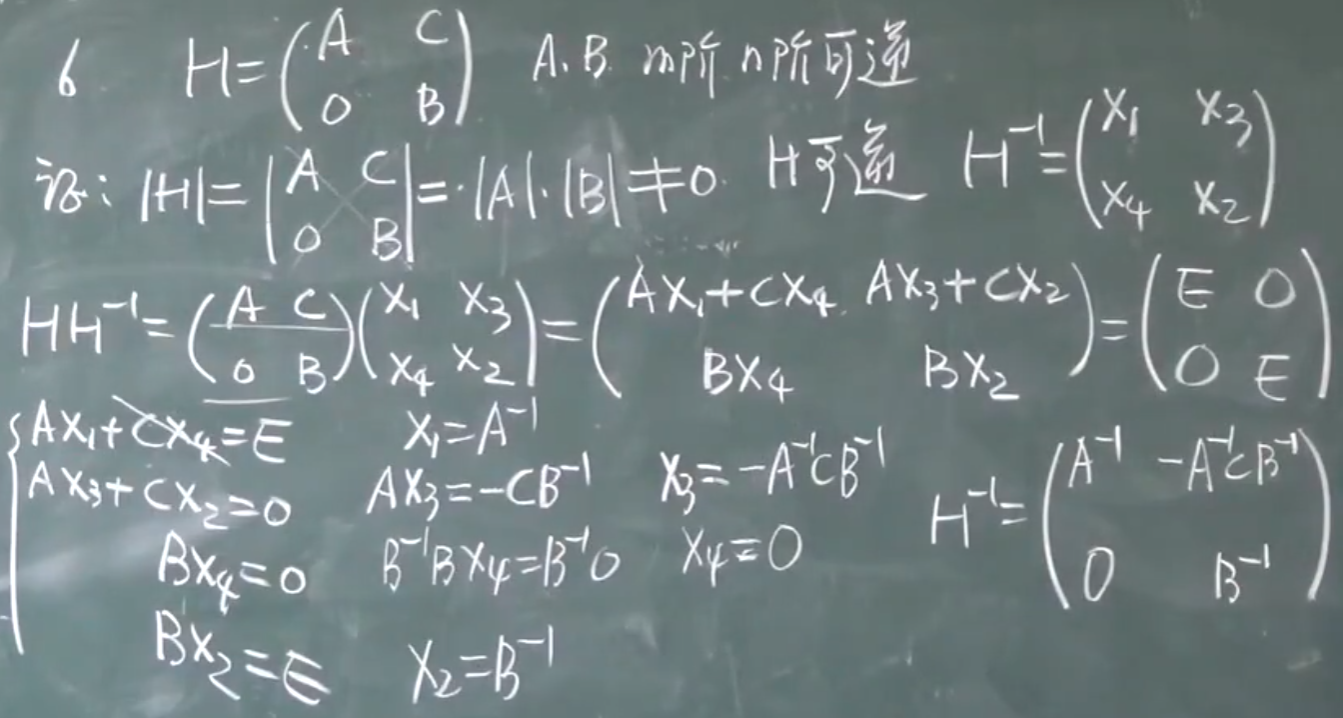 6 H=(A C 0 B) A.B. m阶 n阶可逆
证: |H|=|A C 0 B|=·|A|·|B|≠0. H可逆 H⁻¹=(X₁ X₃ X₄ X₂)
HH⁻¹=(A C 0 B)(X₁ X₃ X₄ X₂)=(AX₁+CX₄ AX₃+CX₂ BX₄ BX₂)=(E O O E)
AX₁+CX₄=E X₁=A⁻¹
AX₃+CX₂=0 AX₃=-CB⁻¹ X₃=-A⁻¹CB⁻¹ H⁻¹=(A⁻¹ -A⁻¹CB⁻¹ 0 B⁻¹)
BX₄=0 B⁻¹BX₄=B⁻¹0 X₄=0
BX₂=E X₂=B⁻¹